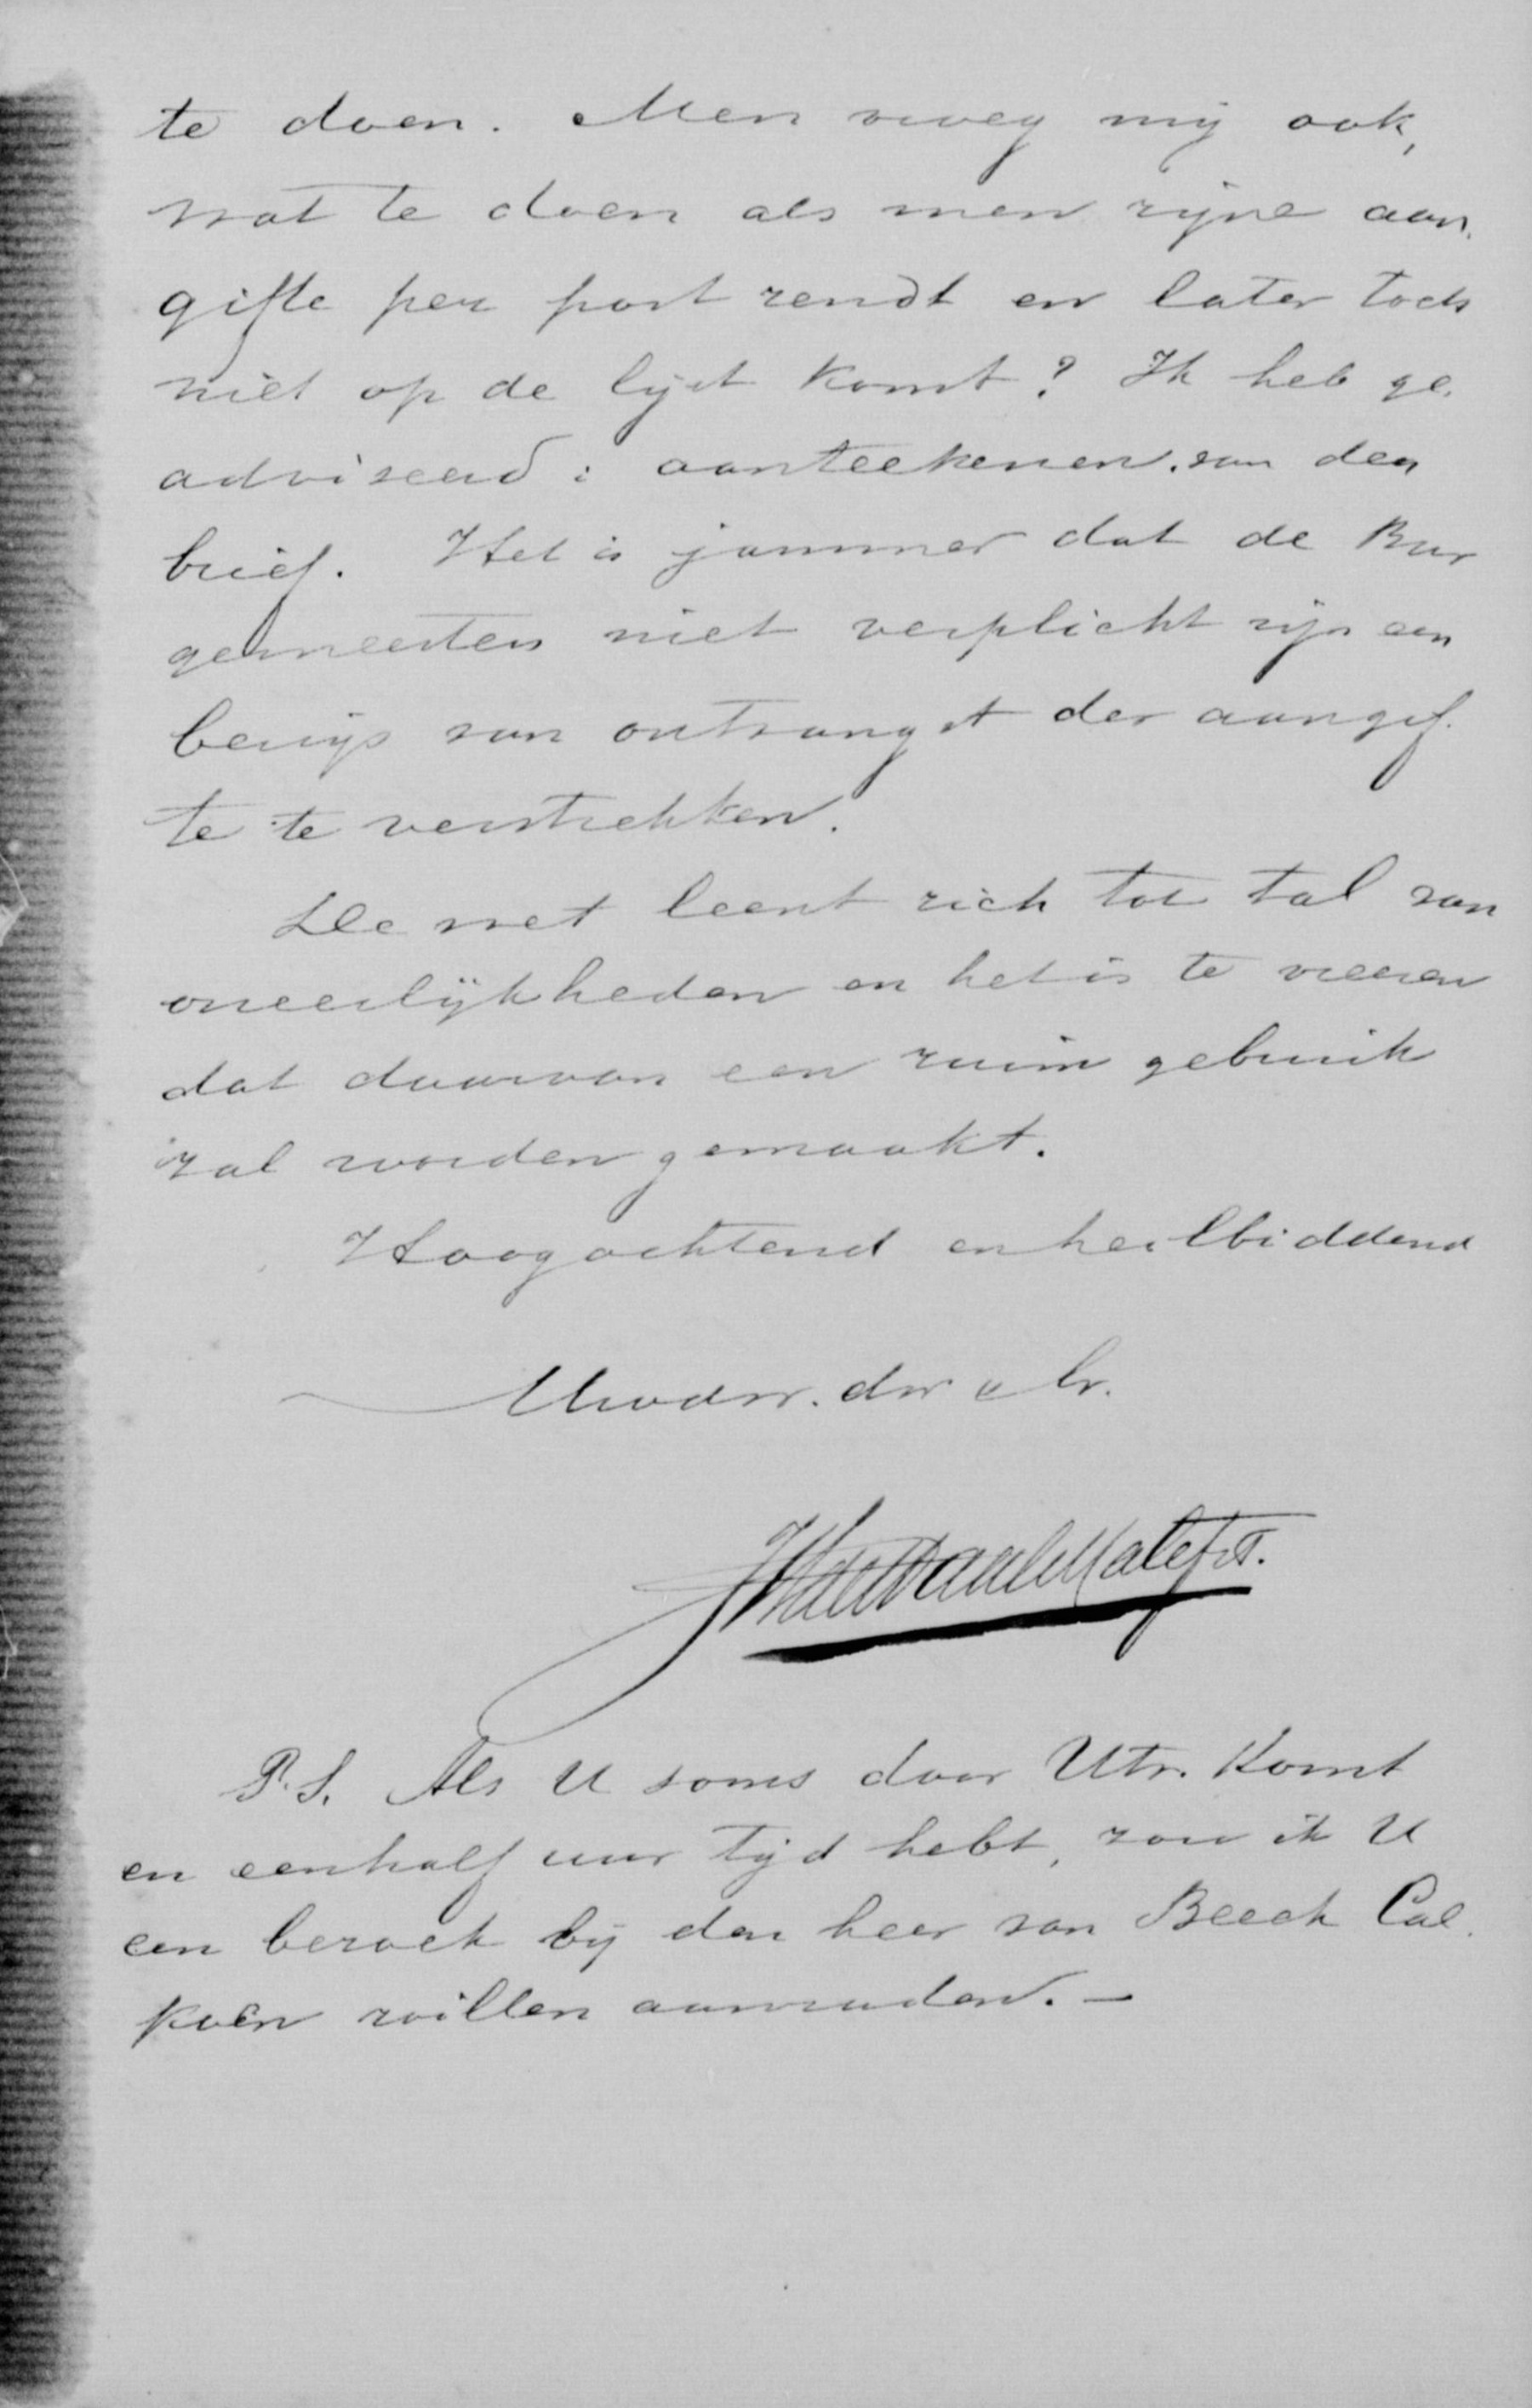 te doen. Men vroeg mij ook,
wat te doen als men zijne aan-
gifte per post zendt en later toch
niet op de lijst komt? Ik heb ge-
adviseerd: aanteekenen van den
brief. Het is jammer dat de Bur
gemeesters niet verplicht zijn een
bewijs van ontvangst der aangif-
te te verstrekken.
De wet leent zich tot tal van
oneerlijkheden en het is te vreezen
dat daarvan een ruim gebruik
zal worden gemaakt.
Hoogachtend en heilbiddend
Uwdw. dr
P.S. Als U soms door Utr. komt
en een half uur tijd hebt, zou ik U
een bezoek bij den heer van Beeck Cal-
koen willen aanraden. —